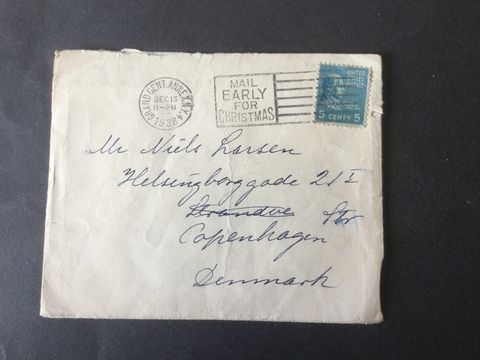 GRAND CENT. ANNEX, N.Y.
DEC 13
11-PM
1938
MAIL
EARLY
FOR
CHRISTMAS
UNITED
STATES
5 CENTS 5
Mr Niels Larsen
Helsingborggade 21 I
Strandve Str
Copenhagen
Denmark